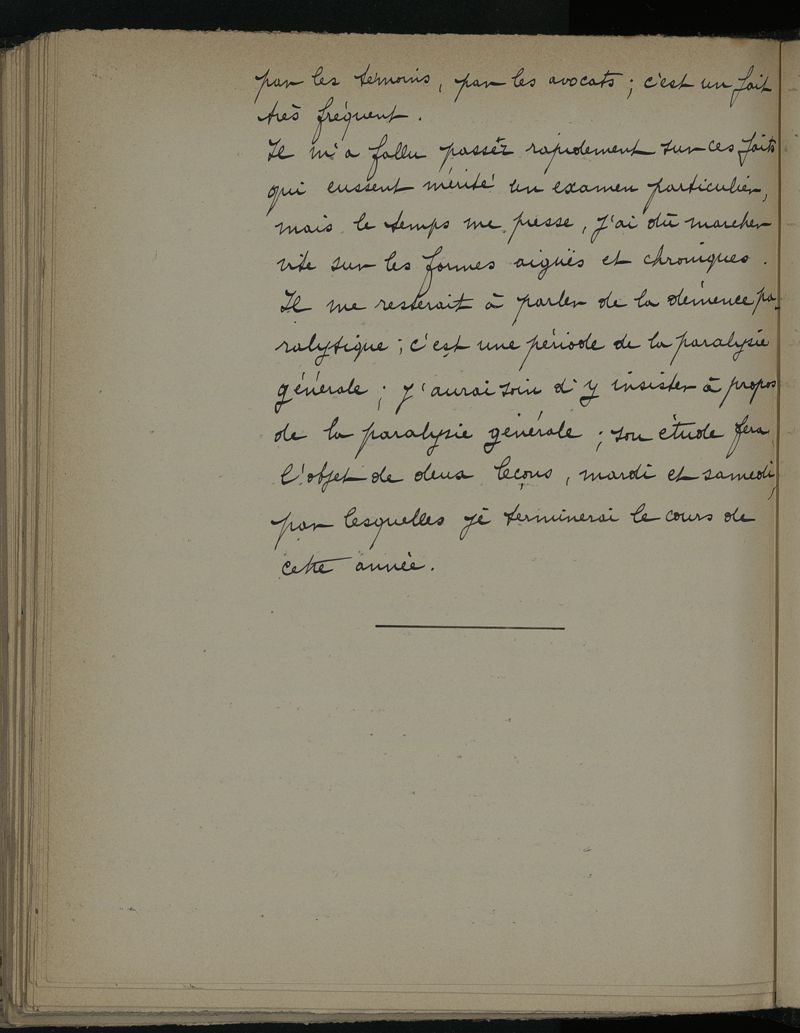 par les témoins, par les avocats ; c'est un fait
très fréquent.
Il m'a fallu passer rapidement sur ces faits
qui eussent mérité un examen particulier,
mais le temps me presse, j'ai dû marcher
vite sur les formes aigüés et chroniques.
Il me resterait à parler de la démence pa-
ralytique ; c'est une période de la paralysie
générale ; j'aurai soin d'y insister à propos
de la paralysie générale ; son étude fera
l'objet de deux leçons, mardi et samedi,
par lesquelles je terminerai le cours de
cette année.